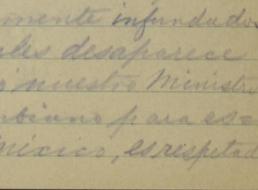 mente infundados
ales desaparece
nuestro Ministro
mbiano para es
México, es respetad